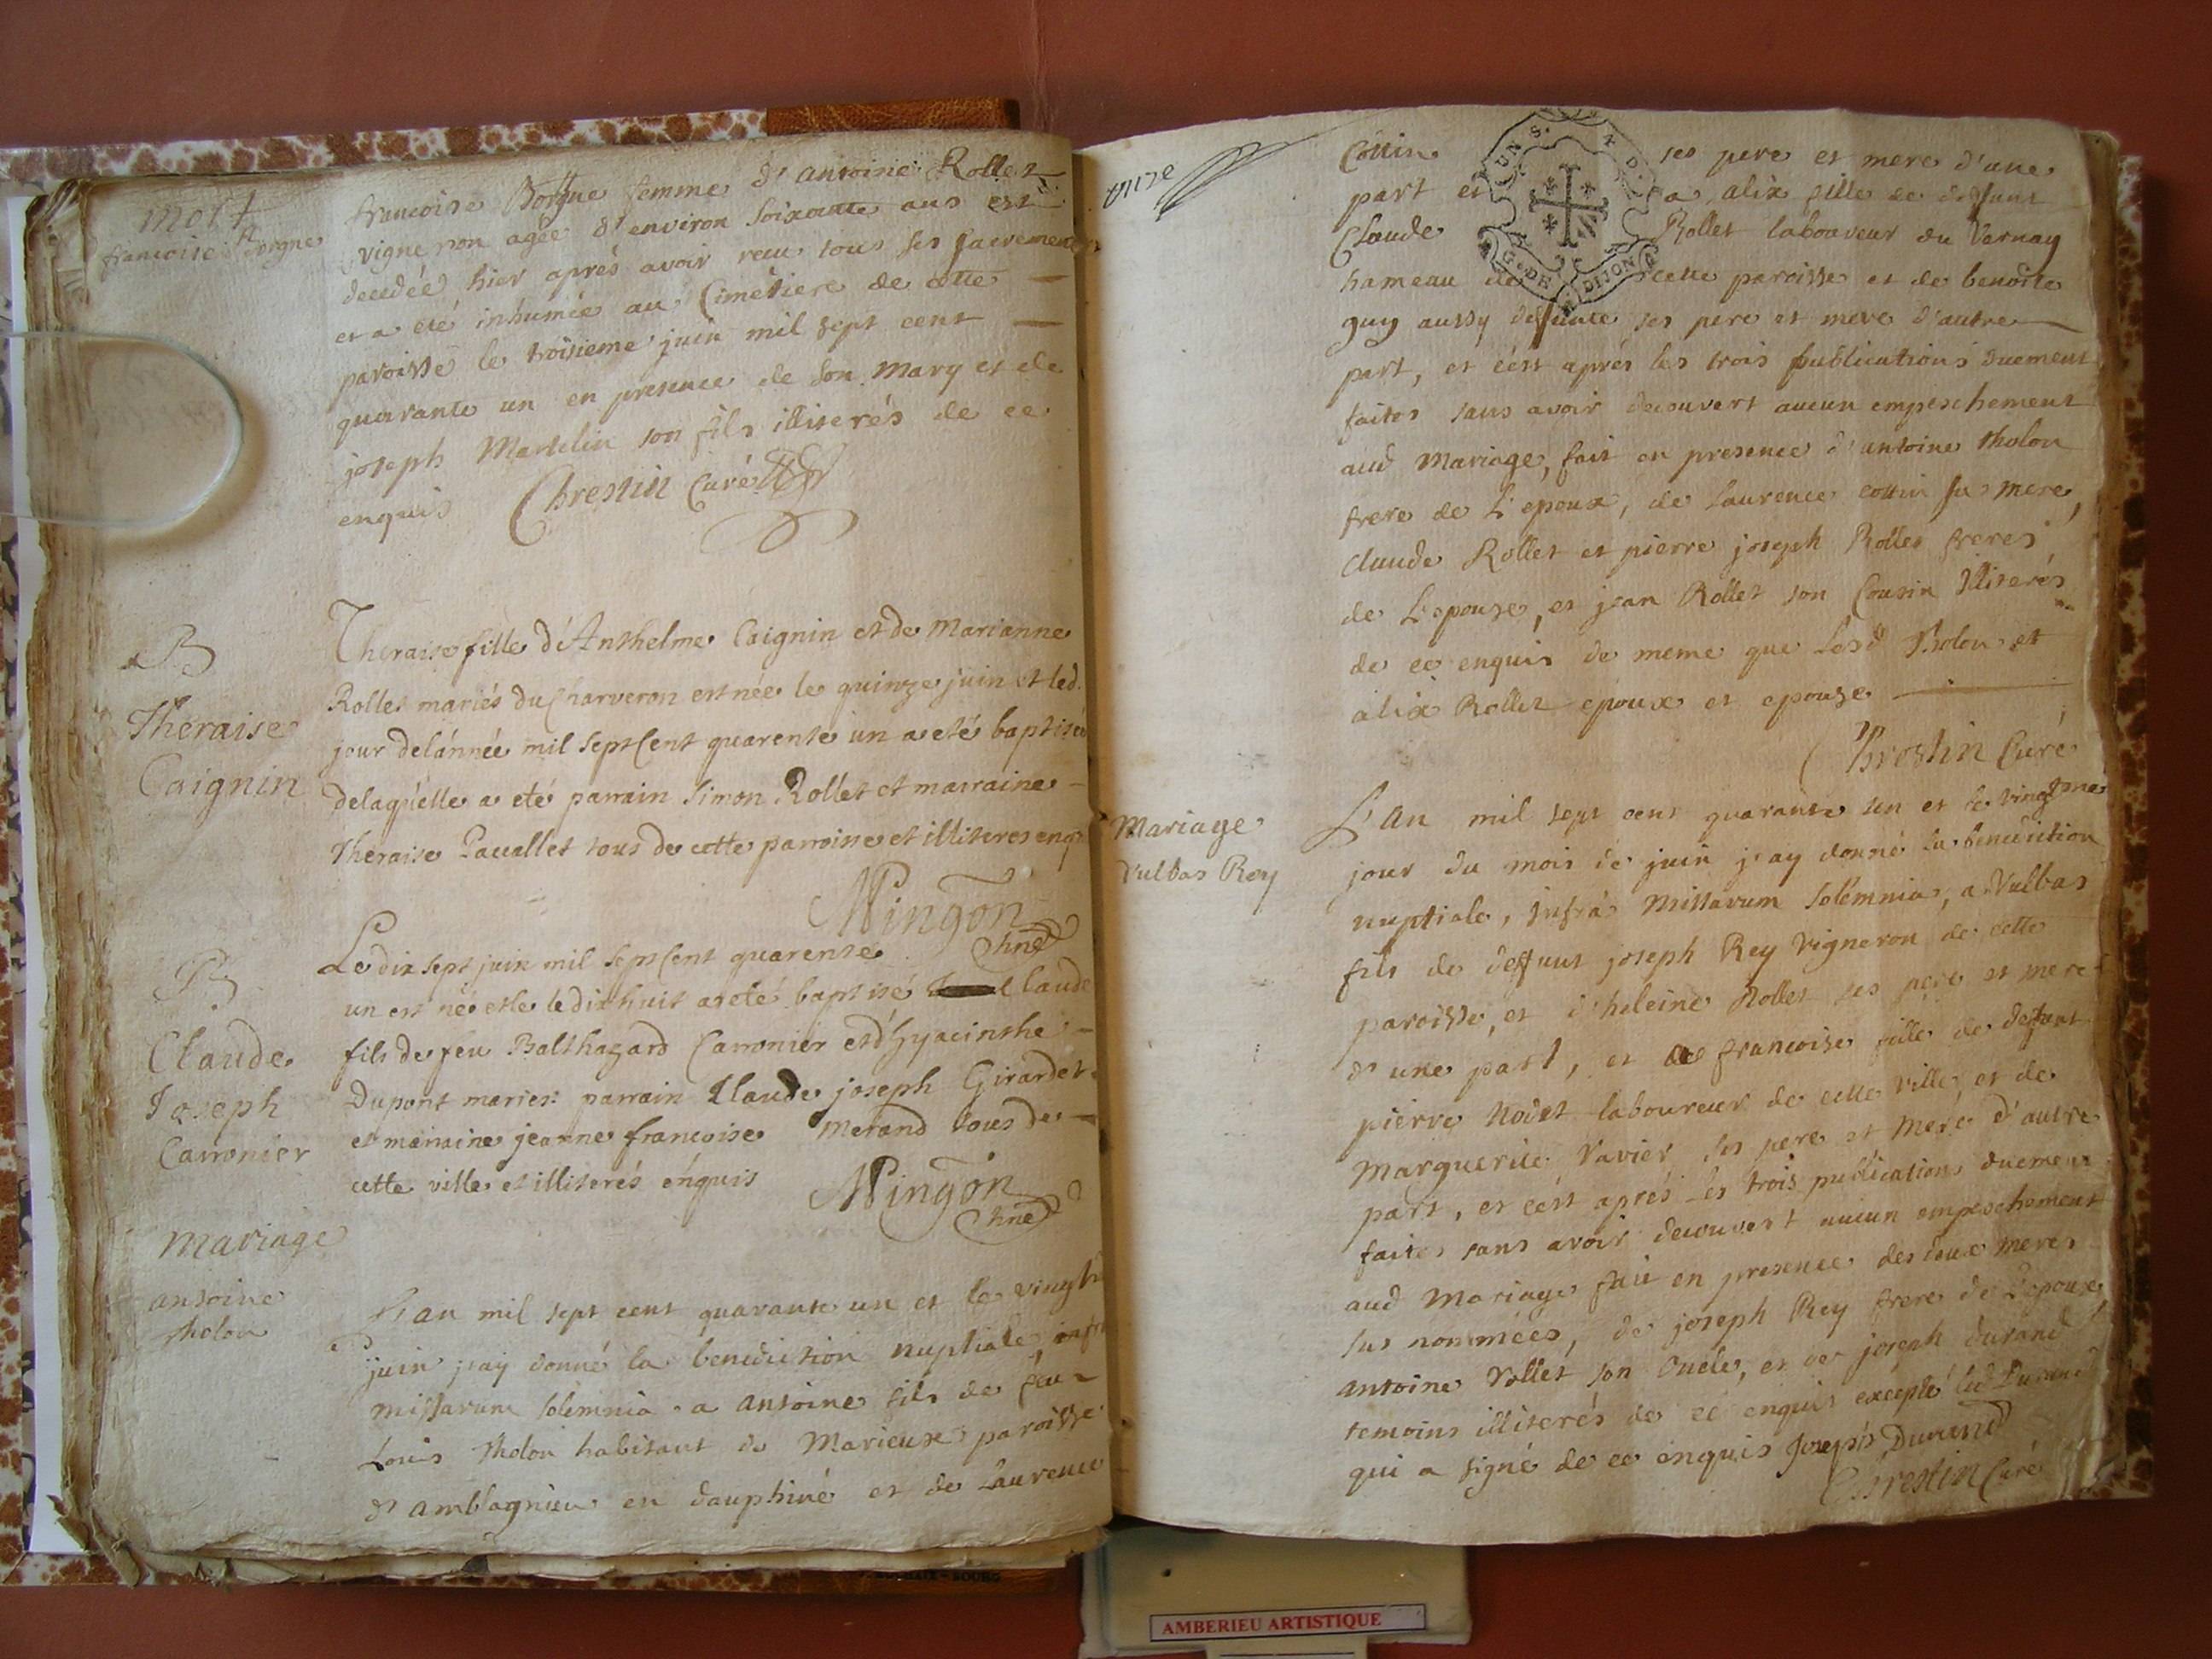 mort
francoise Borgne
francoise Borgne femme d'antoine Rollet
vigneron agée d'environ soixante ans est
decedée hier aprés avoir reçu tous ses sacremens
et a été inhumée au Cimetiere de cette
paroisse le troisieme juin mil sept cent
quarante un en presence de son mary et de
joseph Martelin son fils illiterés de ce
enquis Chrestin Curé
B
Theraise
Caignin
Theraise fille d'Anthelme Caignin et de Marianne
Rollet mariés du Charveron est née le quinze juin et led.
jour de lánnée mil sept Cent quarente un a eté baptisée
de laquelle a eté parrain Simon Rollet et marraine
Theraise Pavallet tous de cette parroisse et illiteres enq.
Mingon
B
Claude
Joseph
Carronier
Le dix sept juin mil sept Cent quarente
un est né et le dix huit a eté baptisé Claude
fils de feu Balthazard Carronier et d'Hyacinthe
Dupont mariés parrain Claude joseph Girardet
et marraine jeanne francoise Merand tous de
cette ville et illiterés énquis
Mingon
Mariage
antoine
tholon
L'an mil sept cent quarante un et le vingt
juin j'ay donné la benediction nuptiale, infra
missarum solemnia a antoine fils de feu
Louis tholon habitant de Marieux paroisse
d'amblagnieu en dauphiné et de Laurence
onze
Cottin ses pere et mere d'une
part et a alix fille de deffunt
Claude Rollet laboureur du Vernay
hameau de cette paroisse et de benoite
guy aussy deffunte ses pere et mere d'autre
part, et c'est aprés les trois publications duement
faites sans avoir decouvert aucun empeschement
aud Mariage, fait en presence d'antoine tholon
frere de L'epoux, de Laurence cottin sa mere,
Claude Rollet et pierre joseph Rollet freres
de L'epouse, et jean Rollet son Cousin illiterés
de ce enquis de meme que Lesd tholon et
alix Rollet epoux et epouse
Chrestin Curé
Mariage
Vulbas Rey
L'an mil sept cent quarante un et le vingt
jour du mois de juin j'ay donné la benediction
nuptiale, infrà Missarum solemnia, a Vulbas
fils de deffunt joseph Rey Vigneron de cette
paroisse, et d'heleine Rollet ses pere et mere
d'une part, et de francoise fille de deffunt
pierre Nodet laboureur de cette ville et de
Marguerite Varier ses pere et Mere d'autre
part, et c'est aprés les trois publications duement
faites sans avoir decouvert aucun empeschement
aud Mariage fait en presence des deux meres
sus nommées, de joseph Rey frere de L'epoux,
antoine Rollet son Oncle, et de joseph durand
temoins illiterés de ce enquis excepté led Durand
qui a signé de ce enquis Joseph Durand
Chrestin Curé
G. DE DIJON
AMBERIEU ARTISTIQUE